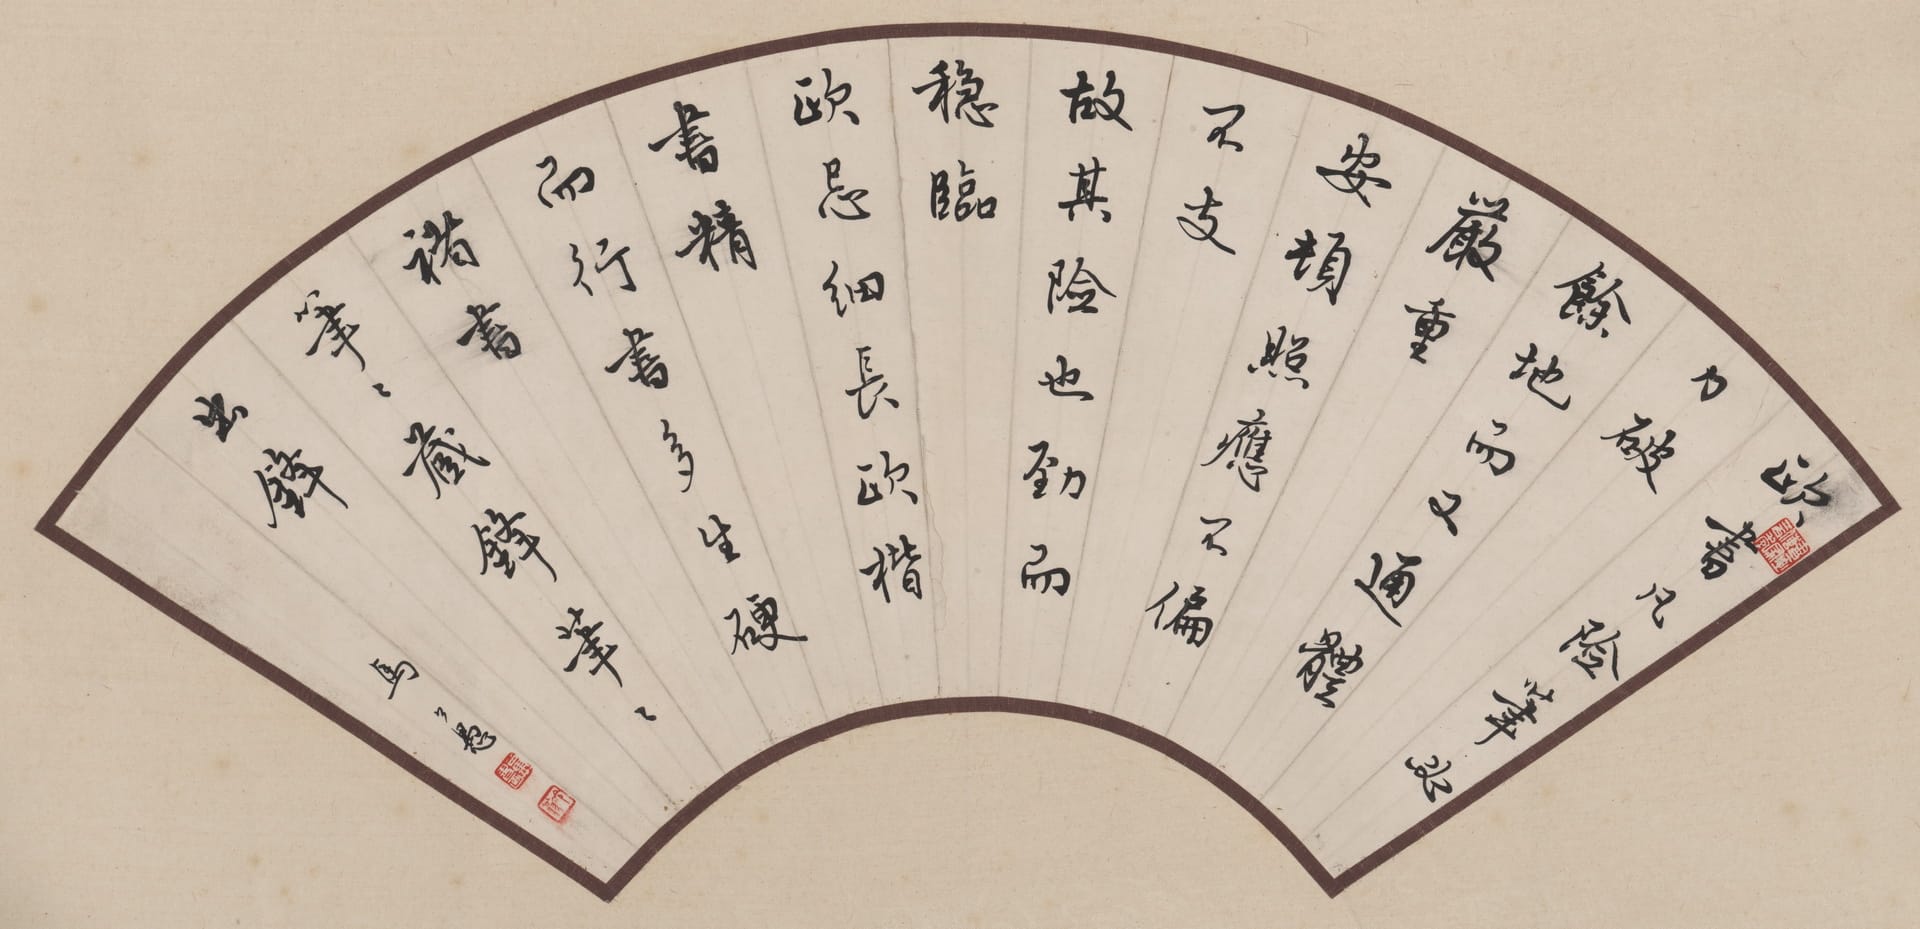 欧書凡險筆必
力破
餘地而又通體
嚴重
安頓照應不偏
不支
故其險也勁而
稳臨
欧忌細長欧楷
書精
而行書多生硬
褚書
筆〻藏鋒筆〻
出鋒
馬公愚